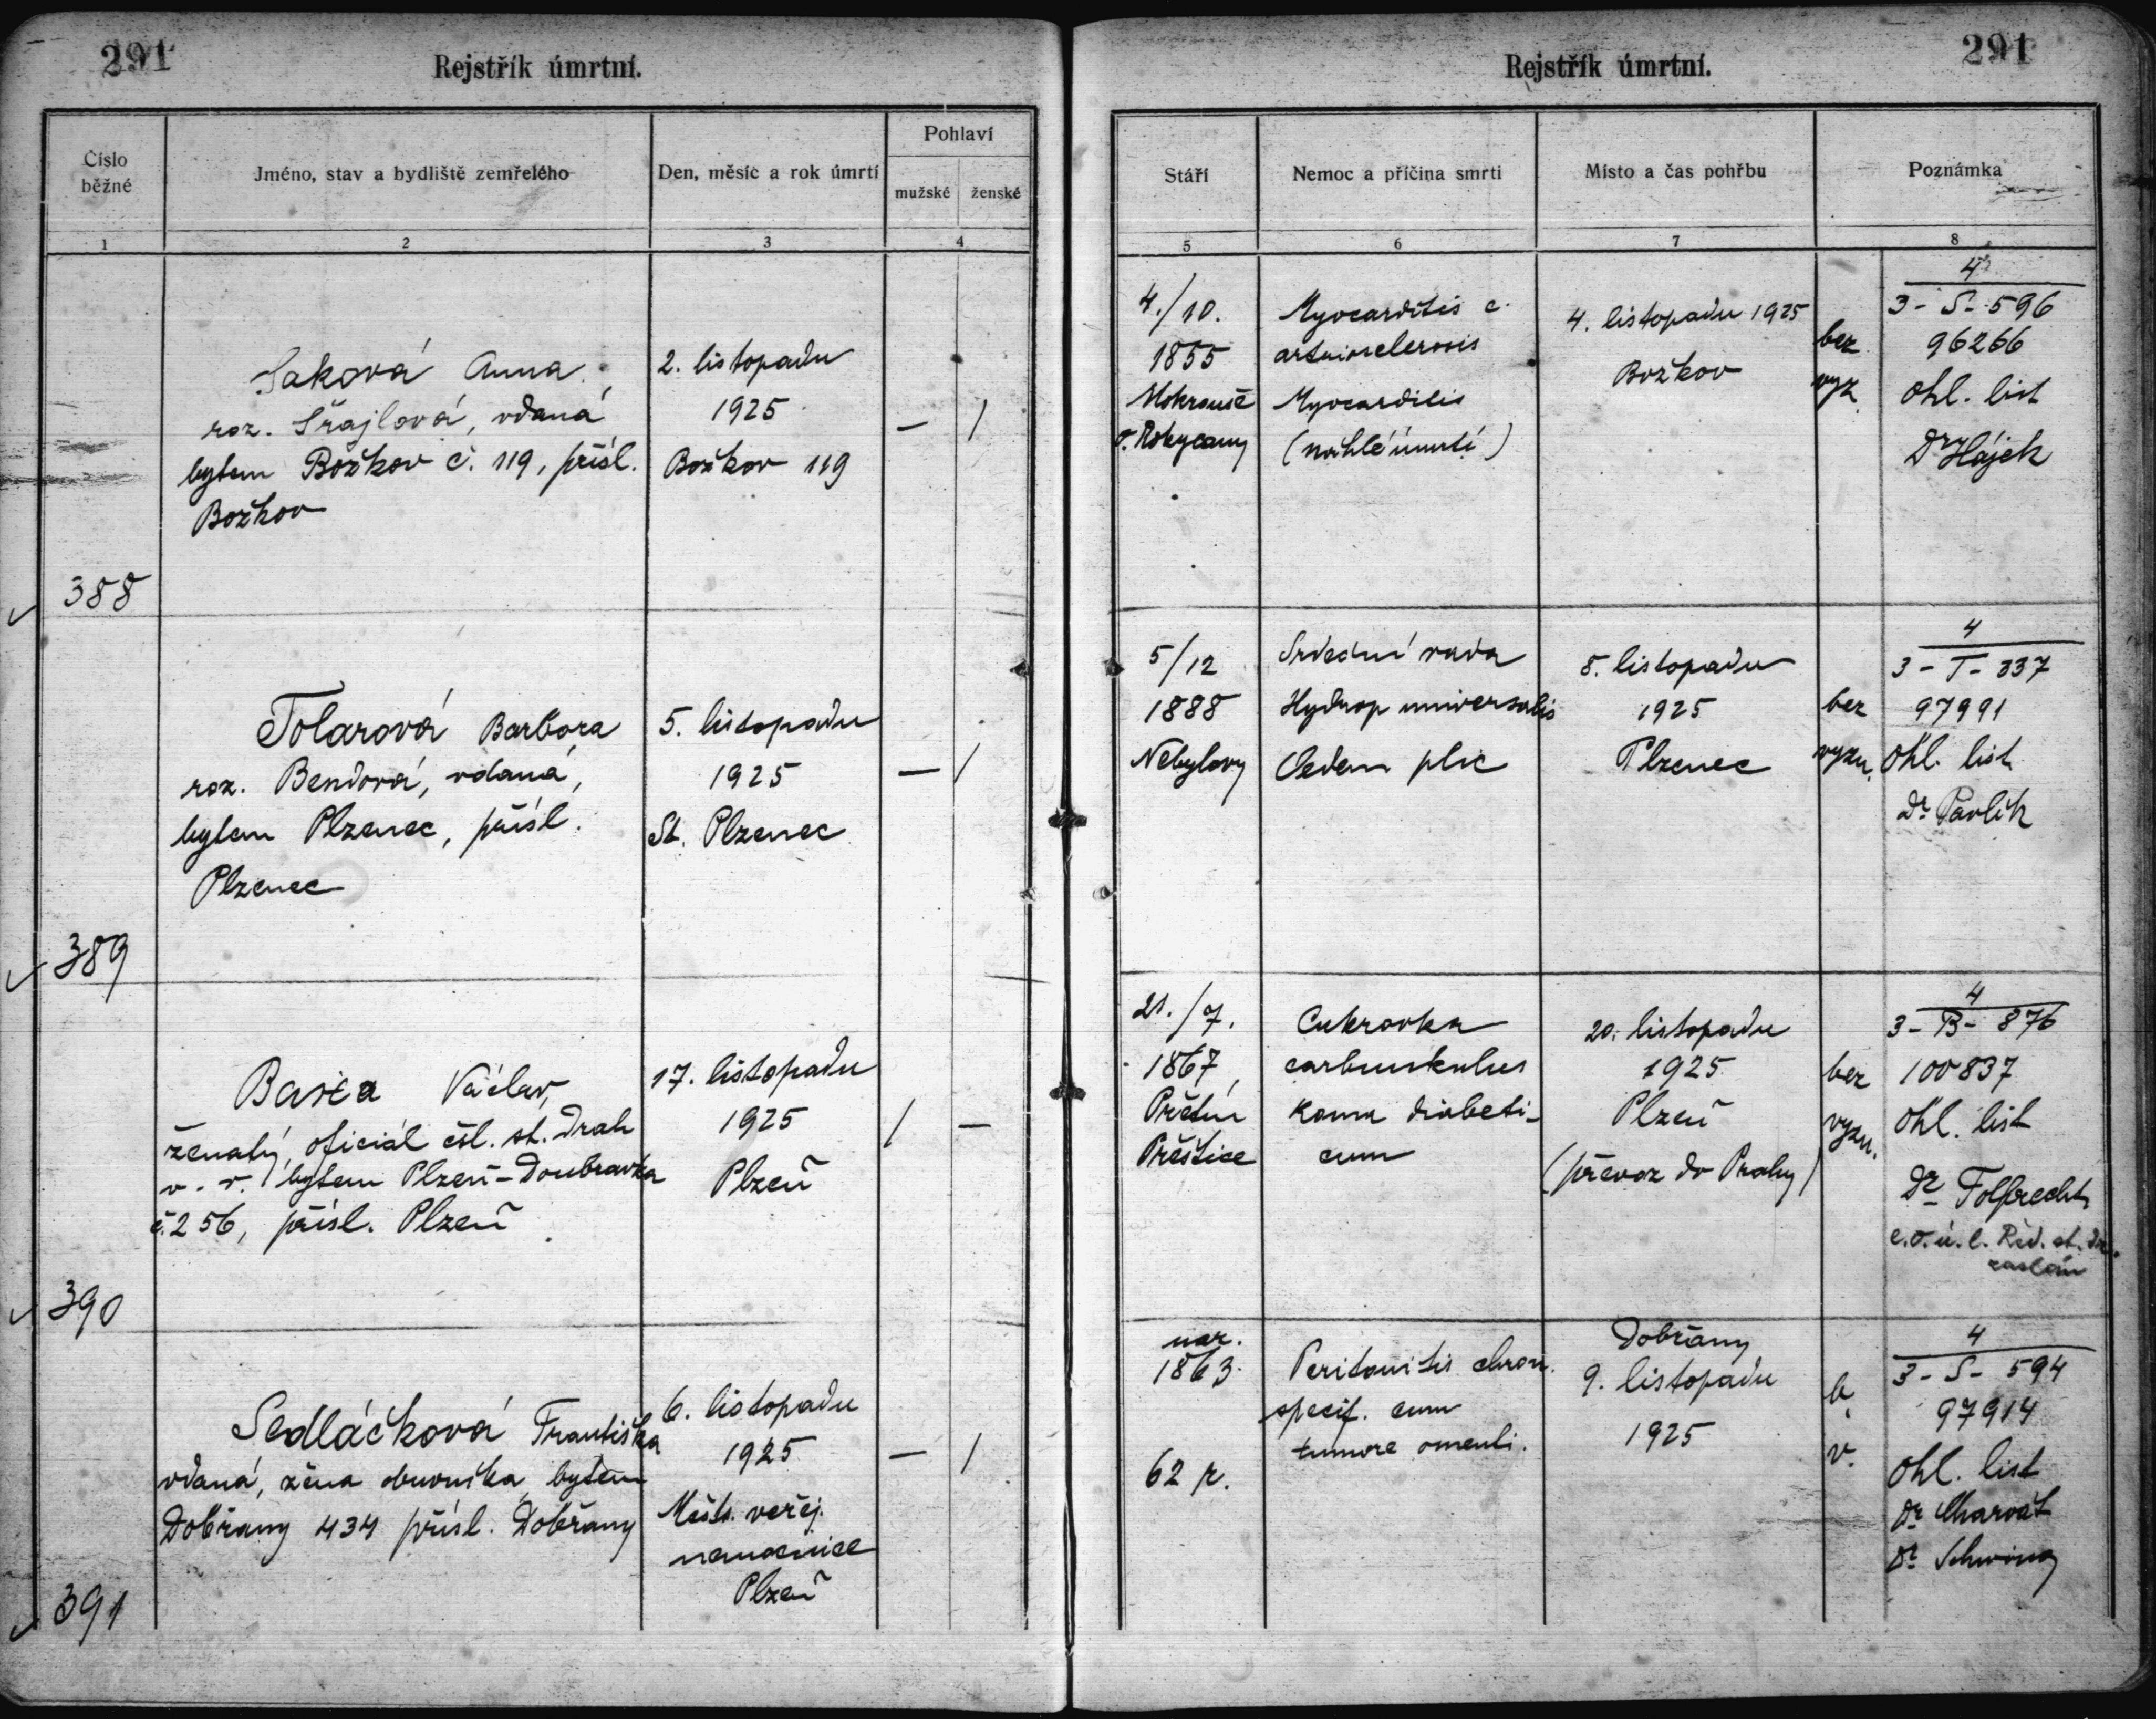 291
Rejstřík úmrtní.
Číslo běžné
Jméno, stav a bydliště zemřelého
Den, měsíc a rok úmrtí
Pohlaví
mužské
ženské
1
2
3
4
Saková Anna
roz. Šrajlová, vdaná
bytem Božkov č. 119, přísl.
Božkov
2. listopadu
1925
Božkov 119
— /
388
Tolarová Barbora
roz. Bendová, vdaná,
bytem Plzenec, přísl.
Plzenec
5. listopadu
1925
St. Plzenec
— /
389
Václav,
ženatý, oficiál čsl. st. drah
v. v. bytem Plzeň-Doubravka
č. 256, přísl. Plzeň
17. listopadu
1925
Plzeň
/ —
390
Sedláčková Františka
vdaná, žena obuvníka, bytem
Dobřany 434 přísl. Dobřany
6. listopadu
1925
Měst. veřej.
nemocnice
Plzeň
— /
391
291
Rejstřík úmrtní.
Stáří
Nemoc a příčina smrti
Místo a čas pohřbu
Poznámka
5
6
7
8
4./10.
1855
o. Rokycany
Myocarditis c.
arteriosclerosis
Myocarditis
(náhlé úmrtí)
4. listopadu 1925
Božkov
bez
vyz.
4
3 - S - 596
96266
ohl. list
Dr Hájek
5/12
1888
Nebylovy
Srdeční vada
Hydrop universalis
Oedem plic
8. listopadu
1925
Plzenec
bez
vyzn.
4
3 - T - 337
97991
ohl. list
Dr Pavlík
21./7.
1867,
Předín
Přeštice
Cukrovka
carbunkulus
koma diabeti-
cum
20. listopadu
1925
Plzeň
(převoz do Prahy)
bez
vyzn.
4
3 - B - 876
100837
ohl. list
Dr Folprecht
zaslán
nar.
1863.
62 r.
Peritonitis chron.
specif. cum
tumore omenti.
Dobřany
9. listopadu
1925
b.
v.
4
3 - S - 594
97914
ohl. list
Dr Charvát
Dr Schwing